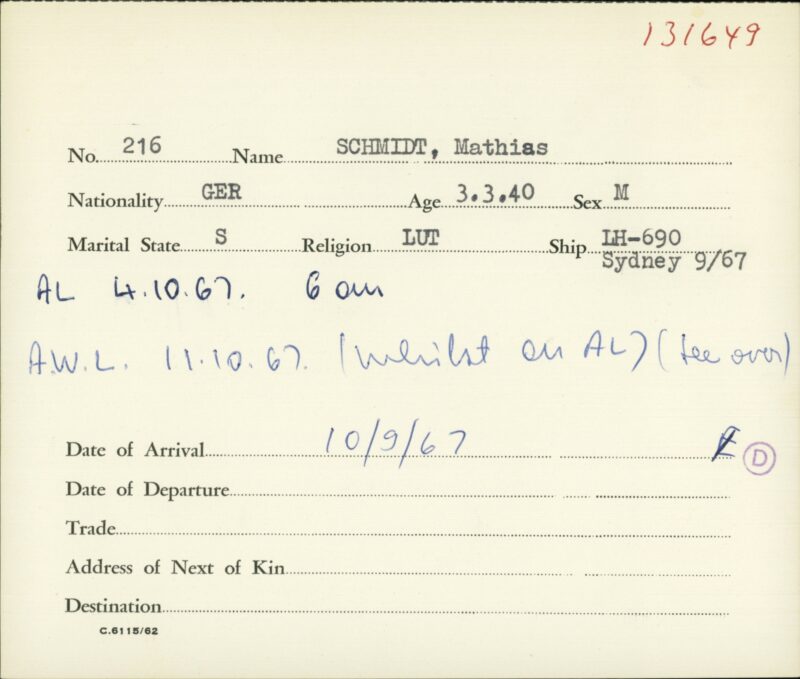 131649
No. 216 Name SCHMIDT, Mathias
Nationality GER Age 3.3.40 Sex M
Marital State S Religion LUT Ship LH-690
Sydney 9/67
AL 4.10.67. 6 am
A.W.L. 11.10.67. (whilst on AL) (see over)
Date of Arrival 10/9/67
D
Date of Departure
Trade
Address of Next of Kin
Destination
C.6115/62